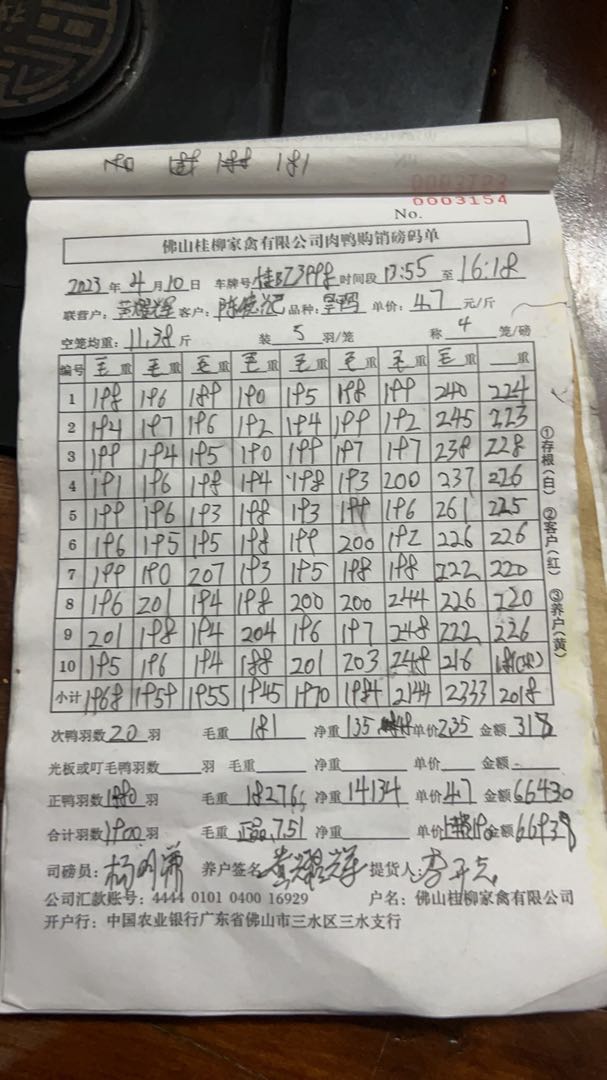 181
0003723
0003154
No.
佛山桂柳家禽有限公司肉鸭购销磅码单
2023 年 4 月 10 日 车牌号 时间段 13:55 至 16:18
联营户: 黄耀辉 客户: 陈德记 品种: 单价: 4.7 元/斤
空笼均重: 11.38 斤 装 5 羽/笼 称 4 笼/磅
编号 毛重 毛重 毛重 毛重 毛重 毛重 毛重 毛重 重
1 198 196 189 190 195 198 199 240 224
2 194 197 196 192 194 199 192 245 223
3 199 194 195 190 199 197 197 238 228
4 191 196 198 194 198 193 200 237 226
5 199 196 193 198 193 199 196 261 225
6 196 195 195 198 199 200 192 226 226
7 199 190 207 193 195 198 198 222 220
8 196 201 194 198 200 200 244 226 220
9 201 198 194 204 196 197 248 222 226
10 195 196 194 188 201 203 248 216
小计 1968 1959 1955 1945 1970 1984 2144 2333 2018
①存根(白) ②客户(红) ③养户(黄)
次鸭羽数 20 羽 毛重 181 净重 135 单价 2.35 金额 318
光板或叮毛鸭羽数 羽 毛重 净重 单价 金额
正鸭羽数 1880 羽 毛重 18276 净重 14134 单价 4.7 金额 66430
合计羽数 1900 羽 毛重 正品7.51 净重 单价 金额
司磅员: 养户签名 黄耀辉 提货人:
公司汇款账号: 4444 0101 0400 16929 户名: 佛山桂柳家禽有限公司
开户行: 中国农业银行广东省佛山市三水区三水支行